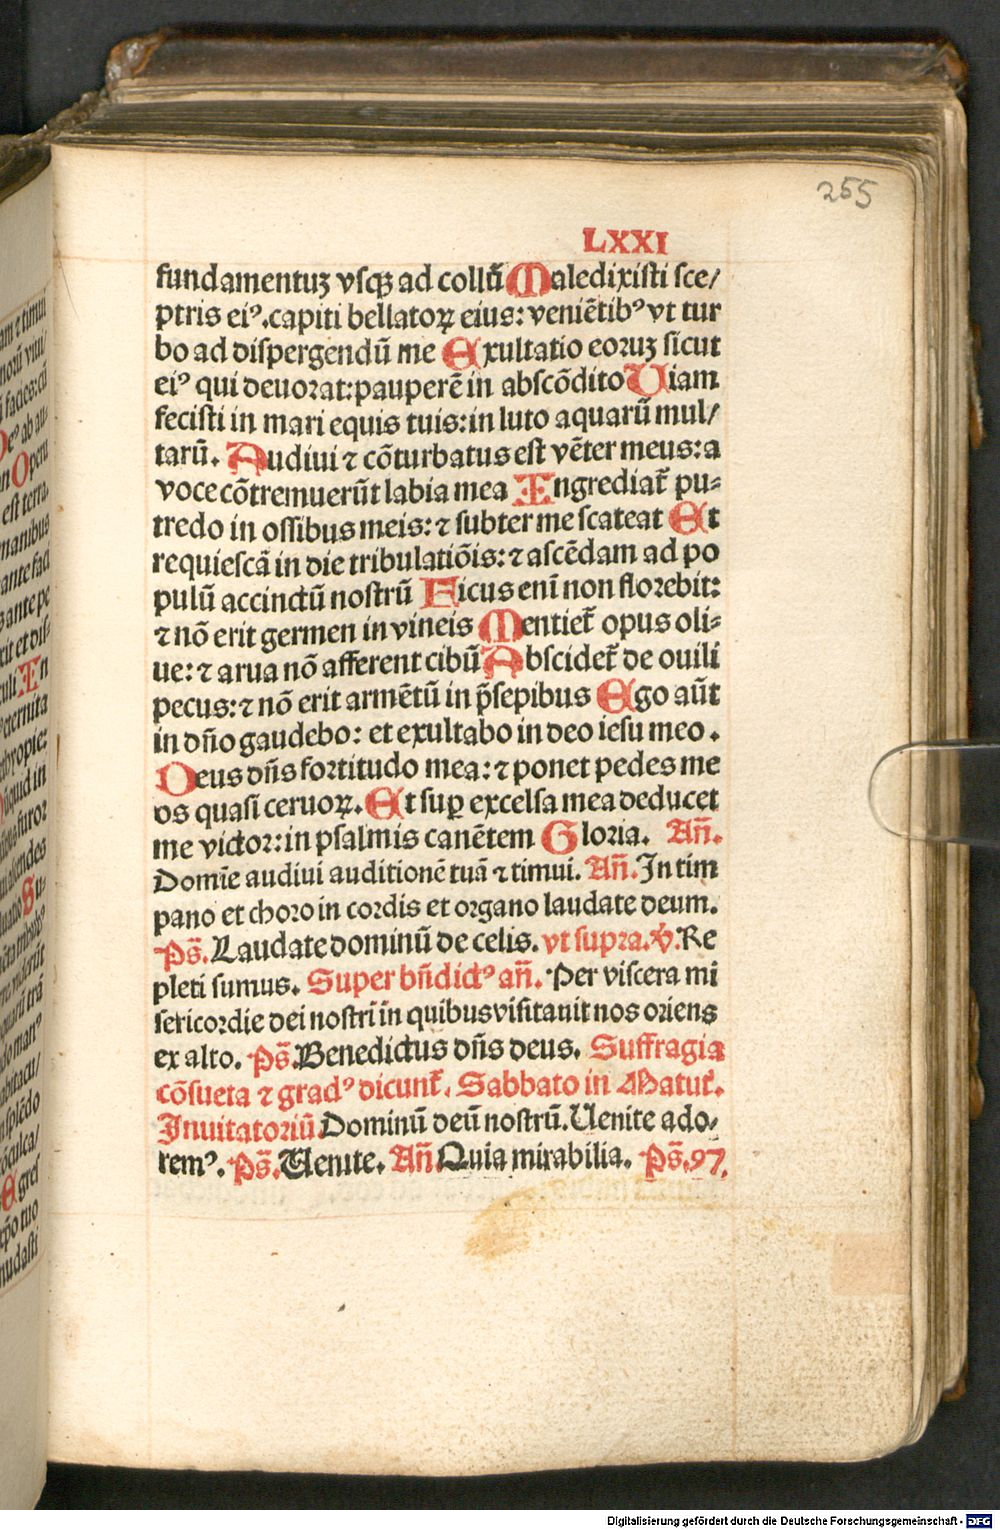 255
LXXI
fundamentuꝫ vsqꝫ ad collū Maledixisti sce/
ptris eiꝰ.capiti bellatoꝝ eius: veniētibꝰ vt tur
bo ad dispergendū me Exultatio eoruꝫ sicut
eiꝰ qui deuorat:pauperē in abscōdito Uiam
fecisti in mari equis tuis:in luto aquarū mul/
tarū. Audiui ⁊ cōturbatus est vēter meus: a
voce cōtremuerūt labia mea Ingrediat̄ pu⸗
tredo in ossibus meis: ⁊ subter me scateat Et
requiescā in die tribulatiōis: ⁊ ascēdam ad po
pulū accinctū nostrū Ficus enī non florebit:
⁊ nō erit germen in vineis Mentiet̄ opus oli⸗
ue: ⁊ arua nō afferent cibū Abscidet̄ de ouili
pecus: ⁊ nō erit armētū in p̄sepibus Ego aūt
in dn̄o gaudebo: et exultabo in deo iesu meo.
Deus dn̄s fortitudo mea: ⁊ ponet pedes me
os quasi ceruoꝝ. Et suꝑ excelsa mea deducet
me victor: in psalmis canētem Gloria. An̄.
Domīe audiui auditionē tuā ⁊ timui. An̄. In tim
pano et choro in cordis et organo laudate deum.
Ps̄. Laudate dominū de celis. vt supra. ℣. Re
pleti sumus. Super bn̄dictꝰ an̄. Per viscera mi
sericordie dei nostri in quibus visitauit nos oriens
ex alto. Ps̄. Benedictus dn̄s deus. Suffragia
cōsueta ⁊ gradꝰ dicunt̄. Sabbato in Matut̄.
Inuitatoriū Dominū deū nostrū. Uenite ado⸗
remꝰ. Ps̄. Uenite. An̄ Quia mirabilia. Ps̄. 97.
Digitalisierung gefördert durch die Deutsche Forschungsgemeinschaft - DFG